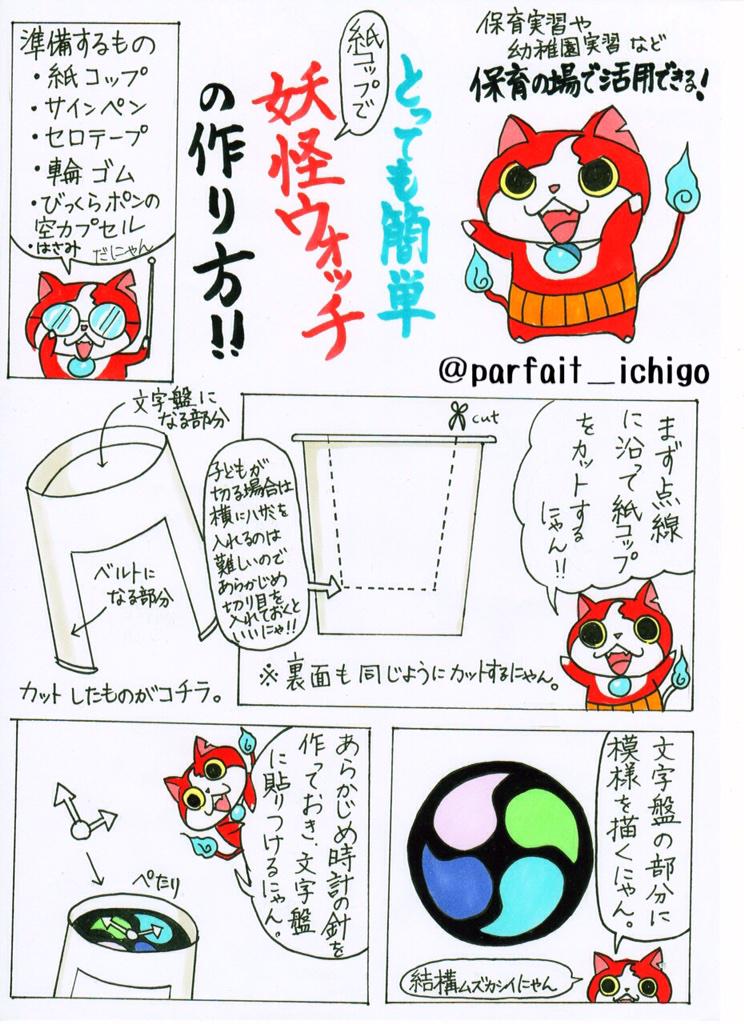 保育実習や
幼稚園実習など
保育の場で活用できる!
とっても簡単
紙コップで
妖怪ウォッチ
の作り方!!
@parfait_ichigo
準備するもの
・紙コップ
・サインペン
・セロテープ
・輪ゴム
・びっくらポンの
空カプセル
・はさみ だにゃん
まず点線
に沿って紙コップ
をカットする
にゃん!!
cut
子どもが
切る場合は
横にハサミを
入れるのは
難しいので
あらかじめ
切り目を
入れておくと
いいにゃ!!
※裏面も同じようにカットするにゃん。
文字盤に
なる部分
ベルトに
なる部分
カットしたものがコチラ。
文字盤の部分に
模様を描くにゃん。
結構ムズカシイにゃん
あらかじめ時計の針を
作っておき、文字盤
に貼りつけるにゃん。
ぺたり